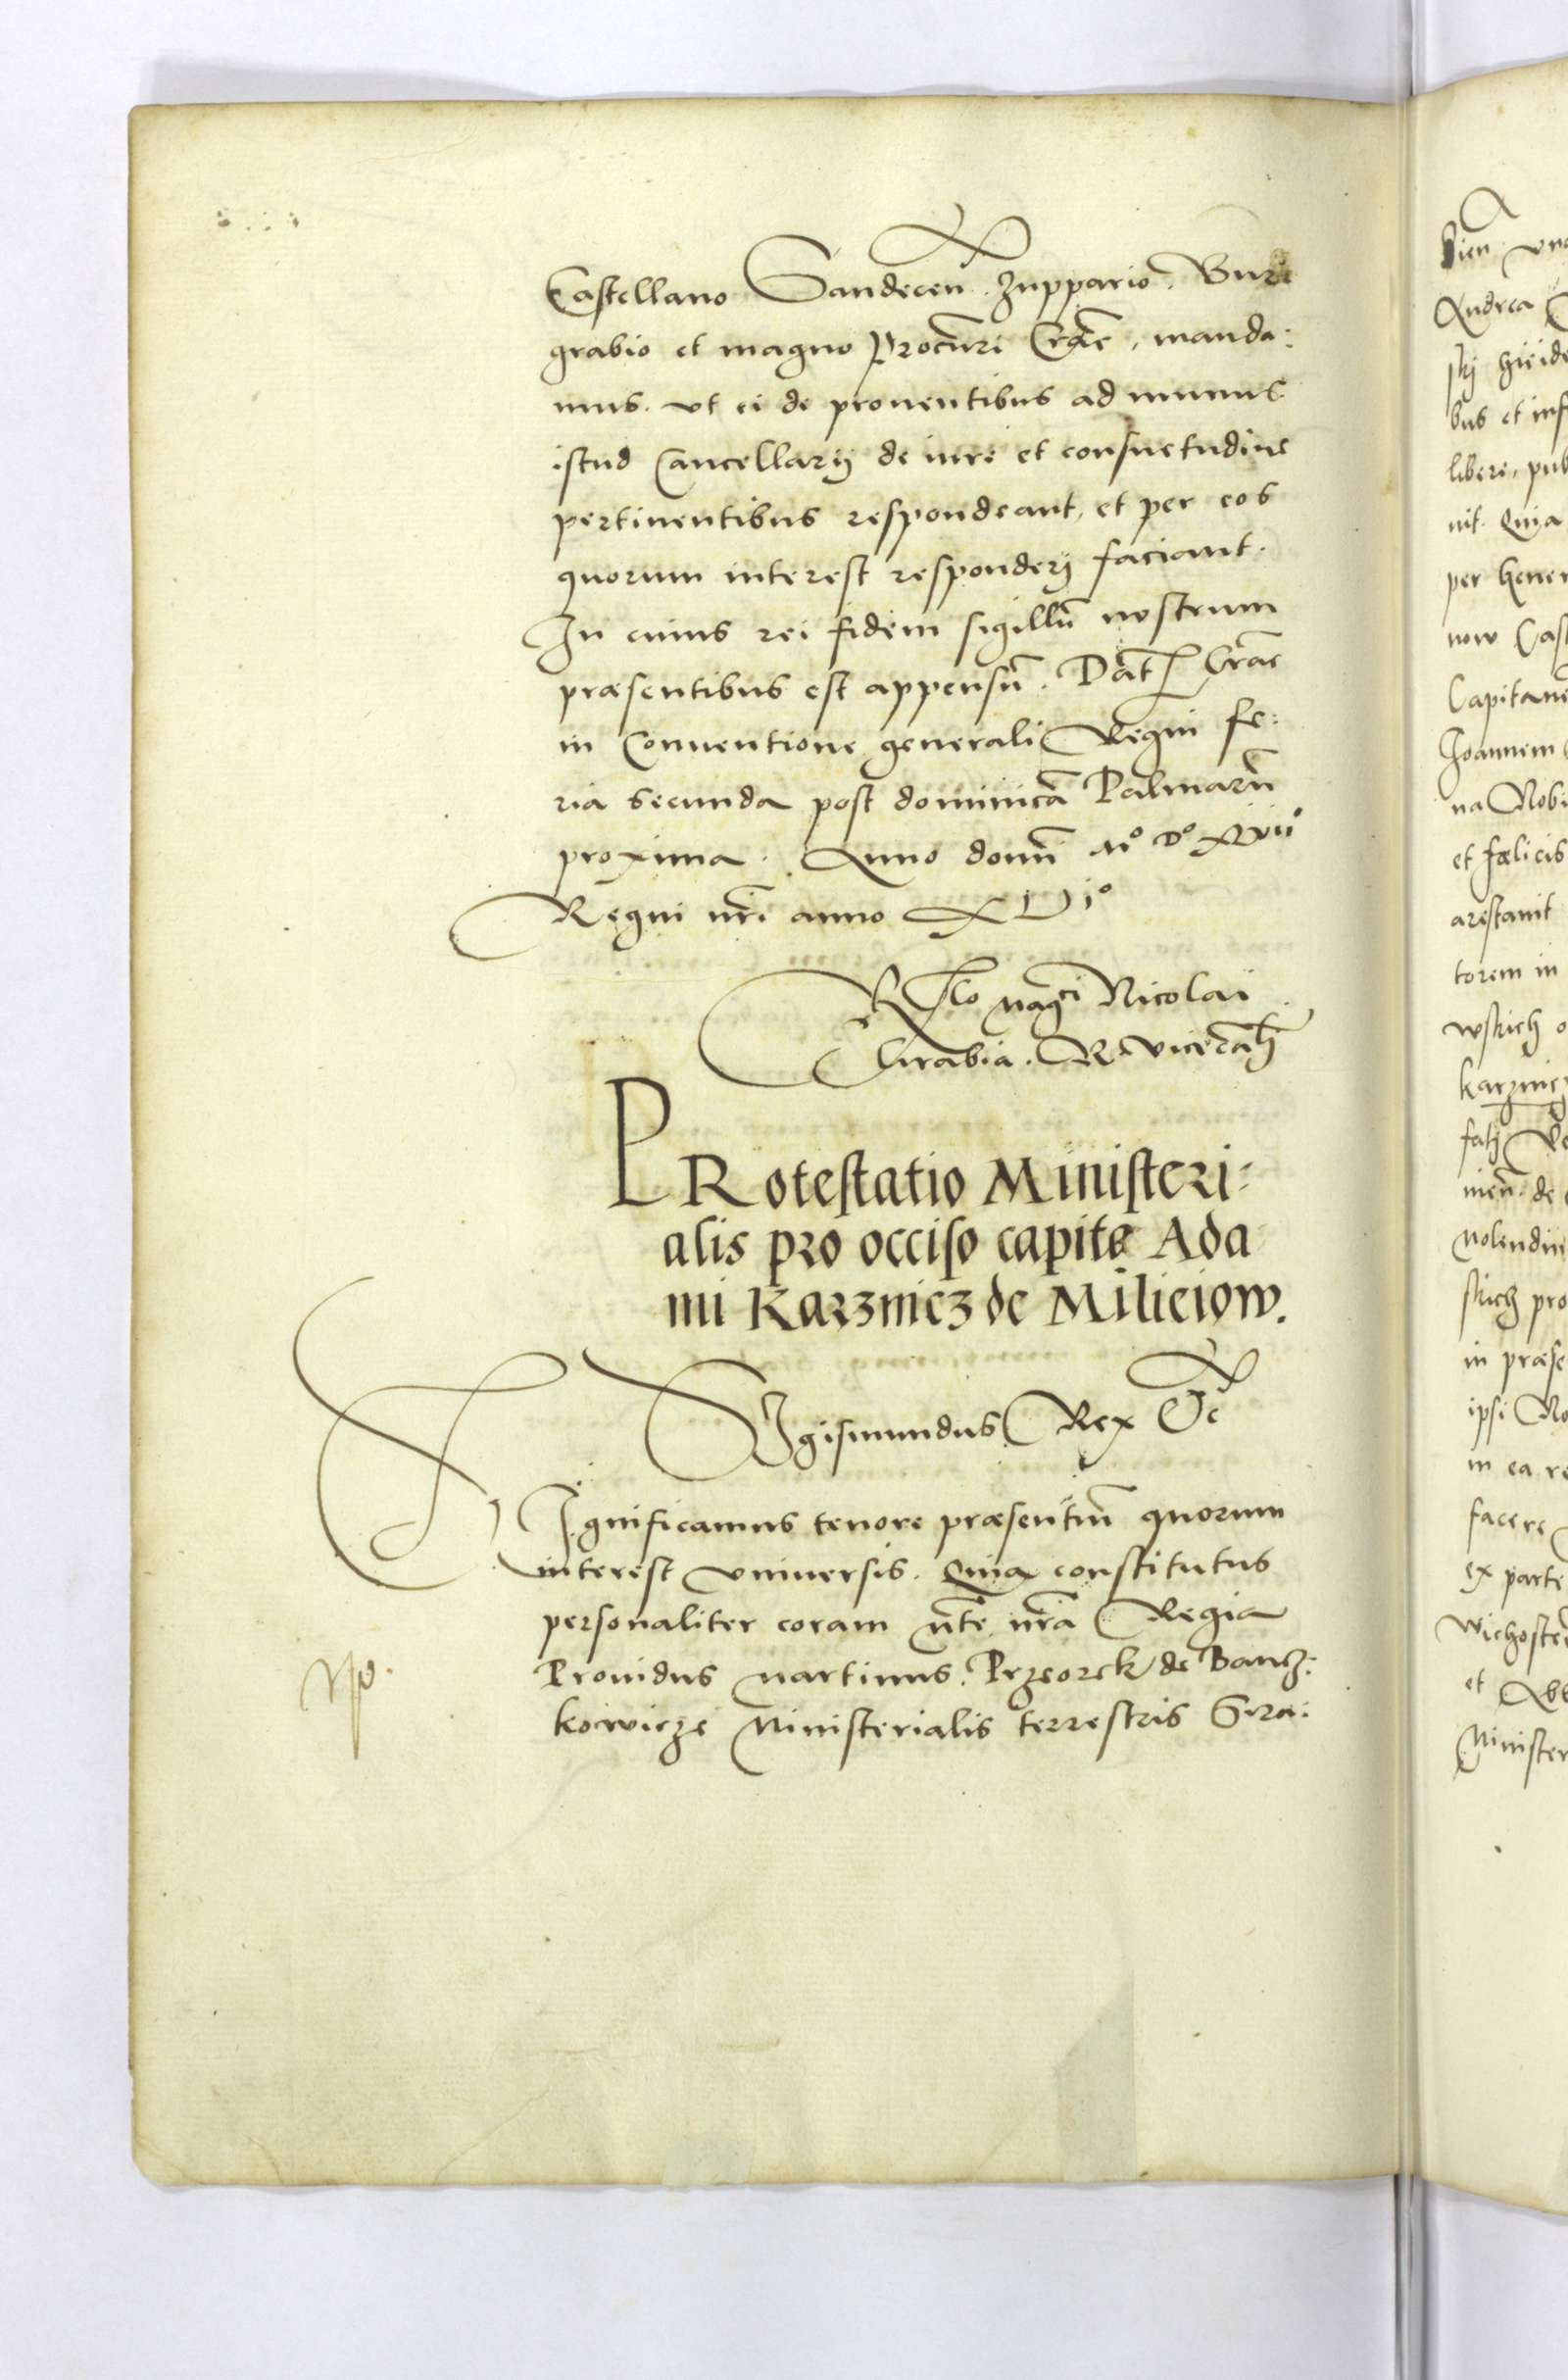 Castellano Sandecen̄. Zuppario. Bur
grabio et magno procūri Crac̄, manda:
mus. vt ei de prouentibus ad munus
istud Cancellarij de iure et consuetudine
pertinentibus respondeant, et per eos
quorum interest responderj faciant.
In cuius rei fidem sigillū nostrum
præsentibus est appensū. Dat Crac̄
in Conuentione generali Regni fe:
ria secunda post dominicā Palmarū
proxima. Anno domī Mº Dº XVIIº
Regni nrī anno XIº
Rlo magci Nicolai
R. vicecan̄
PRotestatio Ministeri:
alis pro occiso capite Ada
mi Karznicz de Milieiow.
SIgismundus Rex &c
SIgnificamus tenore præsentiū quorum
interest vniuersis. Quia constitutus
personaliter coram mte nrā Regia
Prouidus Martinus. Przeorek de Bancz:
kowicze Ministerialis terrestris Sira:
Bien vna
Andrea
skj hieide
bus et inf
libere, pub
uit. Quia
per Gener
now Cast
Capitane
Joannem
na Nobi
et fœlicis
arestauit
torem in
wskich o
karznicz
men̄. de
Molendin
skich pro
in præse
ipsi No
in ea re
facere
ex parte
Wichosten
et Abb
Minister